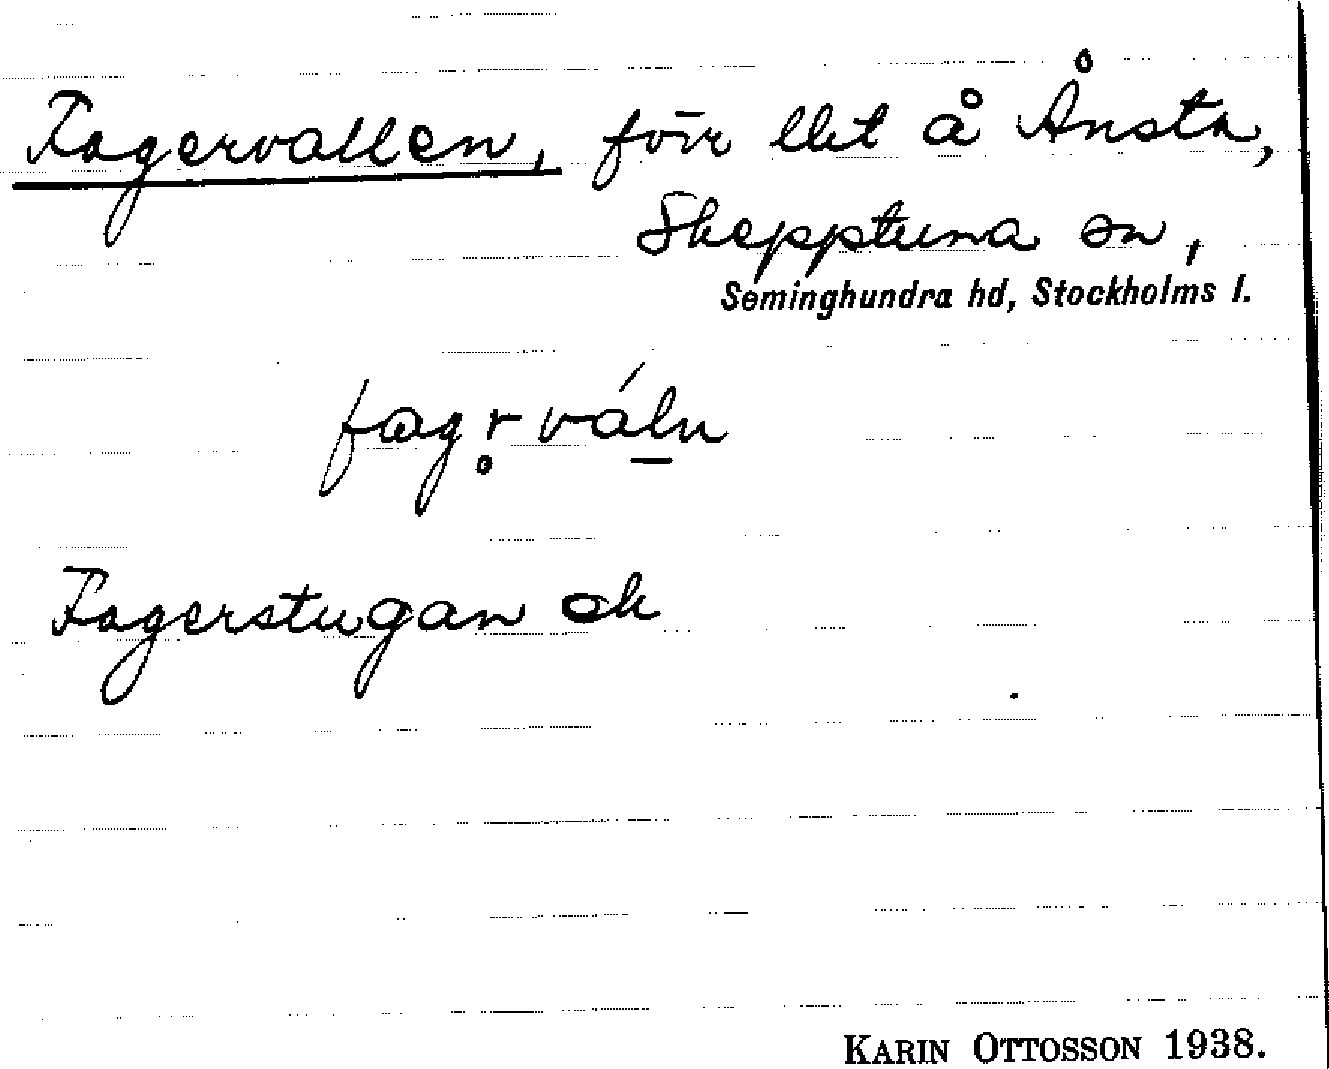 Fagervallen, förr llct å Ånsta,
Skepptuna sn,
Seminghundra hd, Stockholms l.
fagr̥váln
Fagerstugan ck
KARIN OTTOSSON 1938.